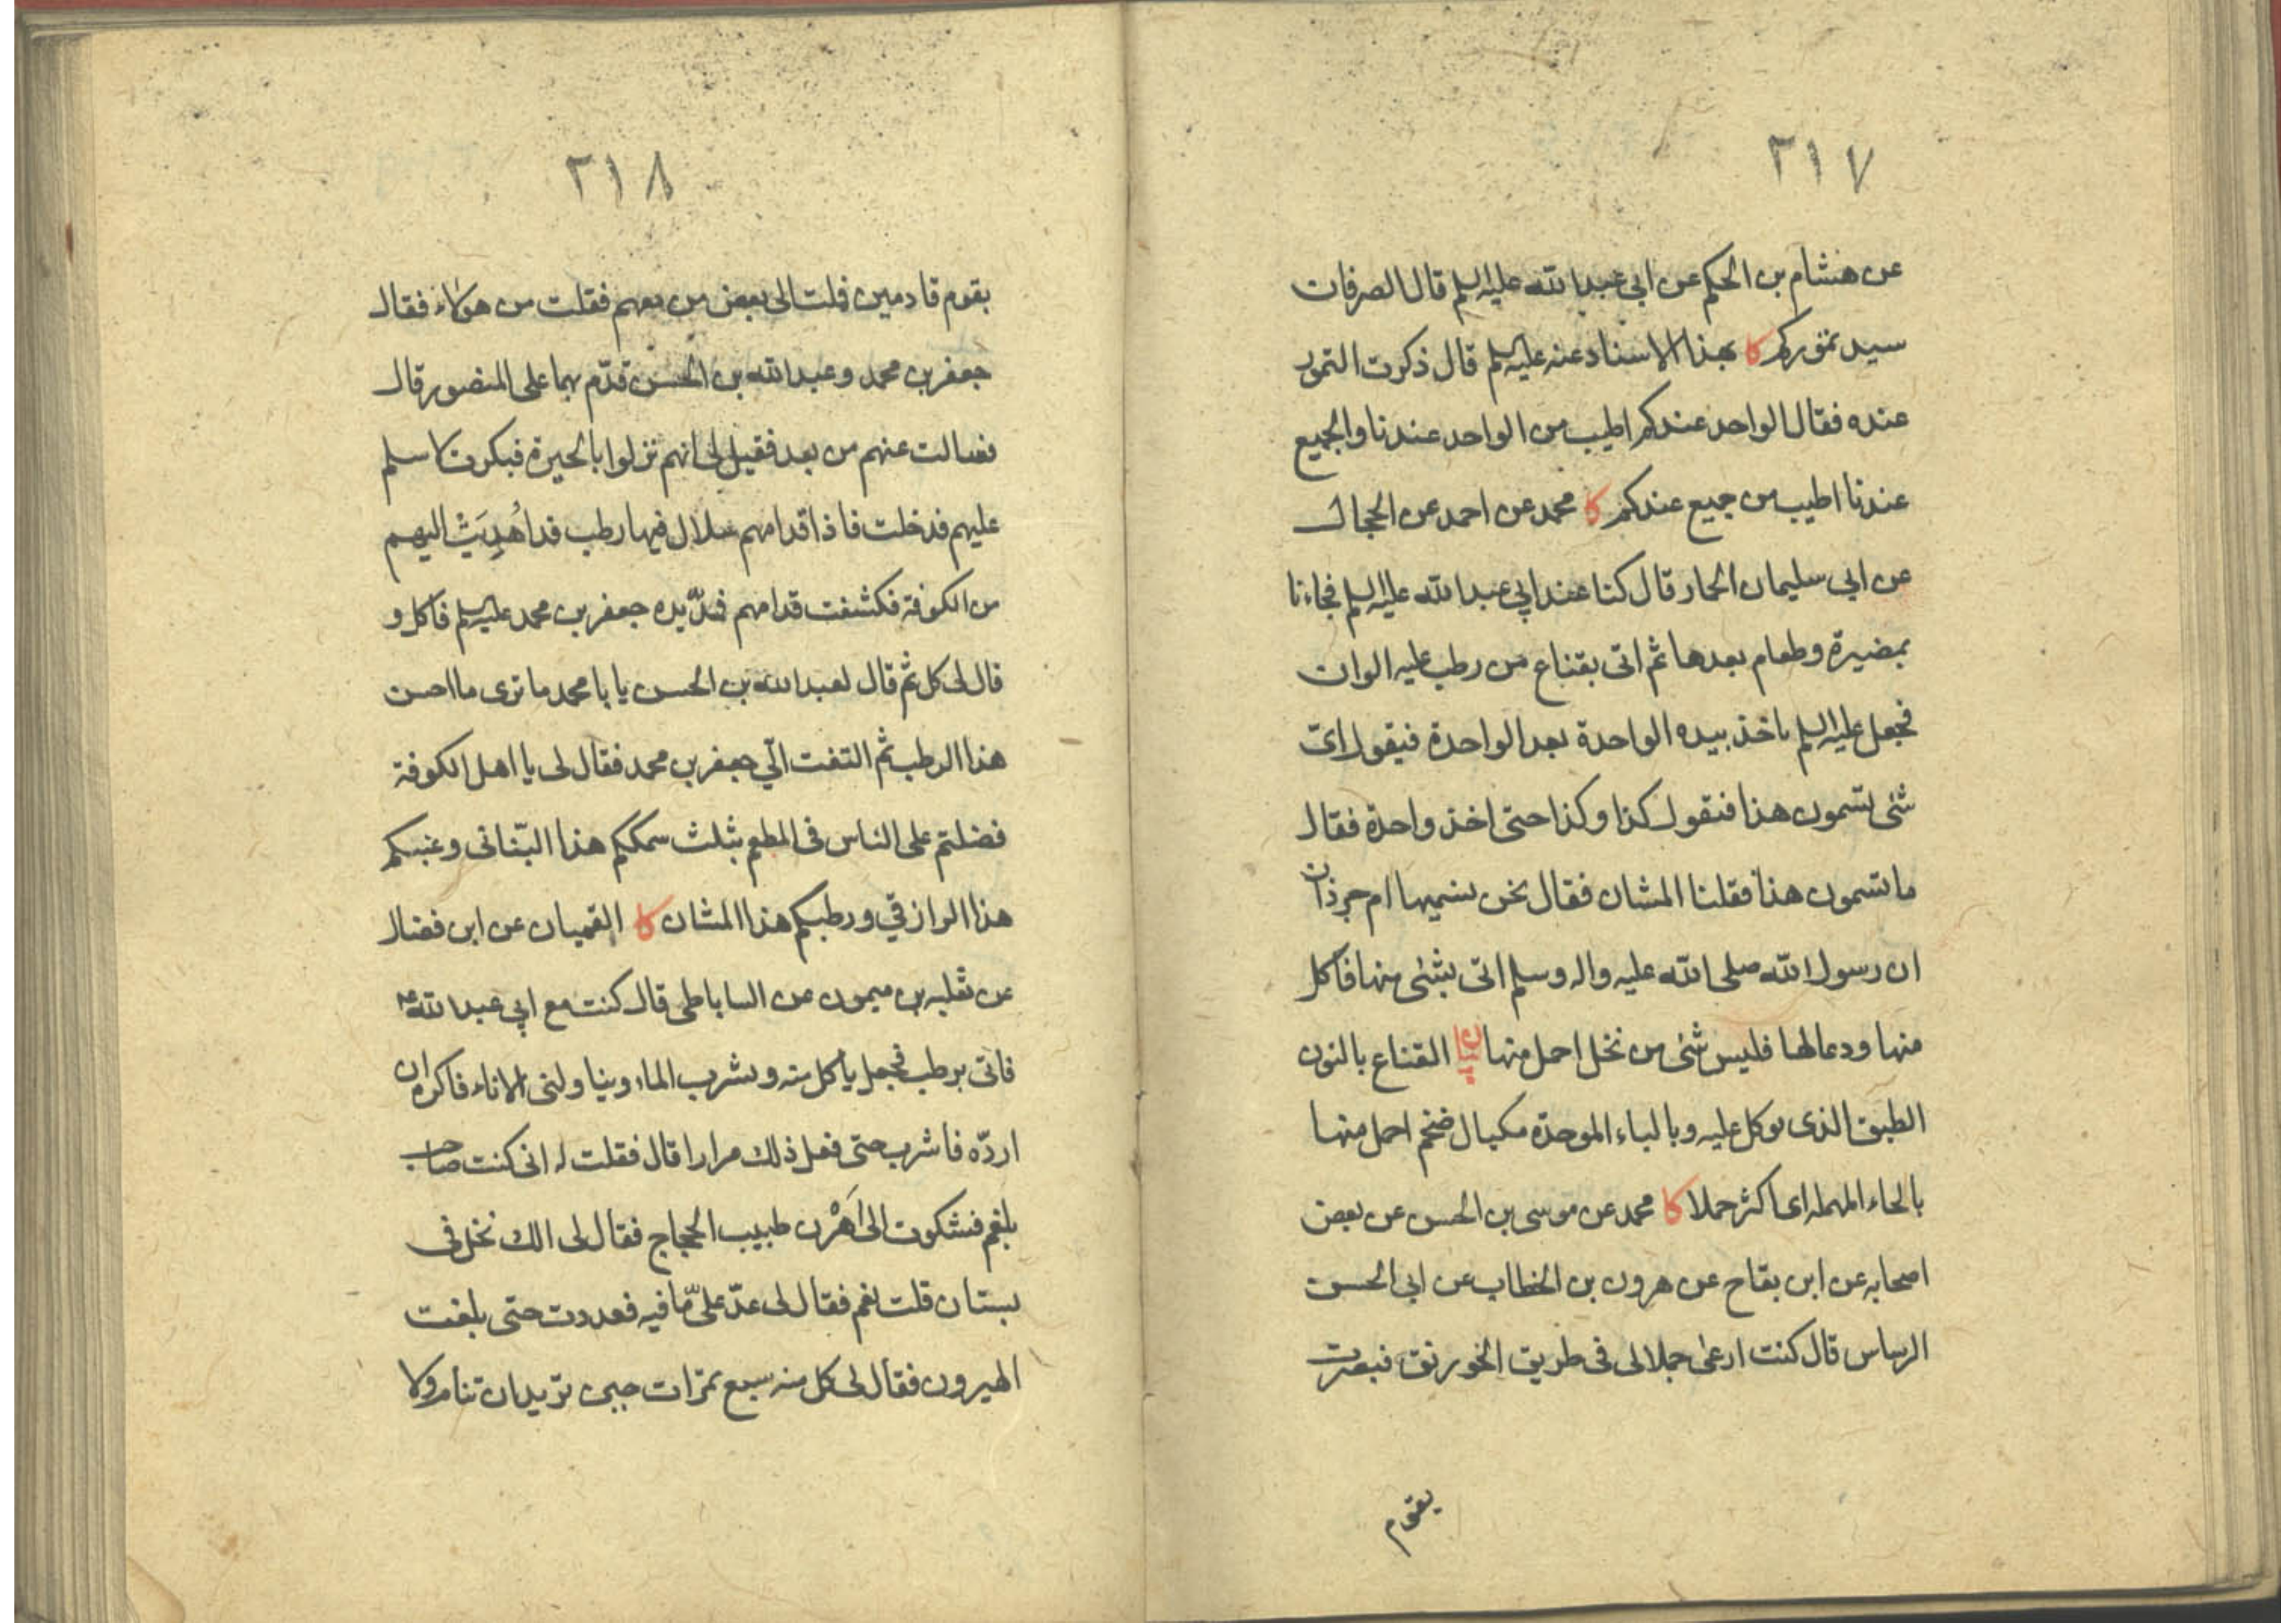 ٢١٧
عن هشام بن الحكم عن ابي عبدالله عليه السلم قال الصرفان
سيد تموركم كا بهذا الاسناد عنه عليه السلم قال ذكرت التمور
عنده فقال الواحد عندكم اطيب من الواحد عندنا والجميع
عندنا اطيب من جميع عندكم كا محمد عن احمد عن الحجال
عن ابي سليمان الحمار قال كنا عند ابي عبدالله عليه السلم فجاءنا
بمضيرة وطعام بعدها ثم اتى بقناع من رطب عليه الوان
فجعل عليه السلم ياخذ بيده الواحدة بعد الواحدة فيقول اىّ
شئ تسمون هذا فنقول كذا وكذا حتى اخذ واحدة فقال
ما تسمون هذا فقلنا المشان فقال نحن نسميها ام جرذان
ان رسول الله صلى الله عليه واله وسلم اتى بشئ منها فاكل
منها ودعا لها فليس شئ من نخل احمل منها بيان القناع بالنون
الطبق الذى يوكل عليه وبالباء الموحدة مكيال ضخم احمل منها
بالحاء المهملة اى اكثر حملا كا محمد عن موسى بن الحسن عن بعض
اصحابه عن ابن بقاح عن هرون بن الخطاب عن ابى الحسن
الرساس قال كنت ارعى جملا لى فى طريق الخورنق فبصرت
بقوم
٢١٨
بقوم قادمين فملت الى بعض من معهم فقلت من هؤلاء فقال
جعفر بن محمد وعبدالله بن الحسن قدّم بهما على المنصور قال
فسالت عنهم من بعد فقيل لى انهم نزلوا بالحيرة فبكرت لاسلم
عليهم فدخلت فاذا قدامهم سلال فيها رطب قد اُهدِيَتْ اليهم
من الكوفة فكشفت قدامهم فمدّ يده جعفر بن محمد عليه السلم فاكل و
قال لى كل ثم قال لعبدالله بن الحسن يا با محمد ما ترى ما احسن
هذا الرطب ثم التفت الىّ جعفر بن محمد فقال لى يا اهل الكوفة
فضلتم على الناس فى المطعم بثلث سمككم هذا البنّانى وعنبكم
هذا الرازقي ورطبكم هذا المشان كا القميان عن ابن فضال
عن ثعلبه بن ميمون عن الساباطى قال كنت مع ابي عبدالله ع
فاتى برطب فجعل ياكل منه ويشرب الماء ويناولنى الاناء فاكره ان
اردّه فاشرب حتى فعل ذلك مرارا قال فقلت له انى كنت صاحب
بلغم فشكوت الى اَهْرن طبيب الحجاج فقال لى الك نخل فى
بستان قلت نعم فقال لى عدّ علىّ ما فيه فعددت حتى بلغت
الهيرون فقال لى كل منه سبع تمرات حين تريد ان تنام ولا